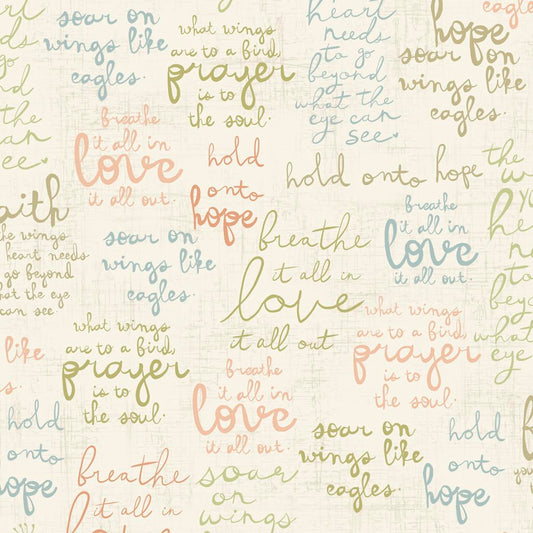 soar on
wings like
eagles.
what wings
are to a bird,
prayer
is to
the soul.
heart
needs
to go
beyond
what the
eye can
see
hope
soar on
wings like
eagles.
the
eye can
see
breathe
it all in
love
it all out.
hold
onto
hope
hold onto hope
faith
the wings
heart needs
go beyond
what the eye
can see
soar on
wings like
eagles.
breathe
it all in
love
it all out
breathe
it all in
love
it all out.
the
heart
needs
to
beyond
what
eye
what wings
are to a bird,
prayer
is to
the soul.
breathe
it all in
love
it all out.
what wings
are to a bird,
prayer
is to
the soul.
like
hold
onto
hope
soar on
wings like
eagles.
hold
onto
hope
breathe
it all in
soar
on
wings